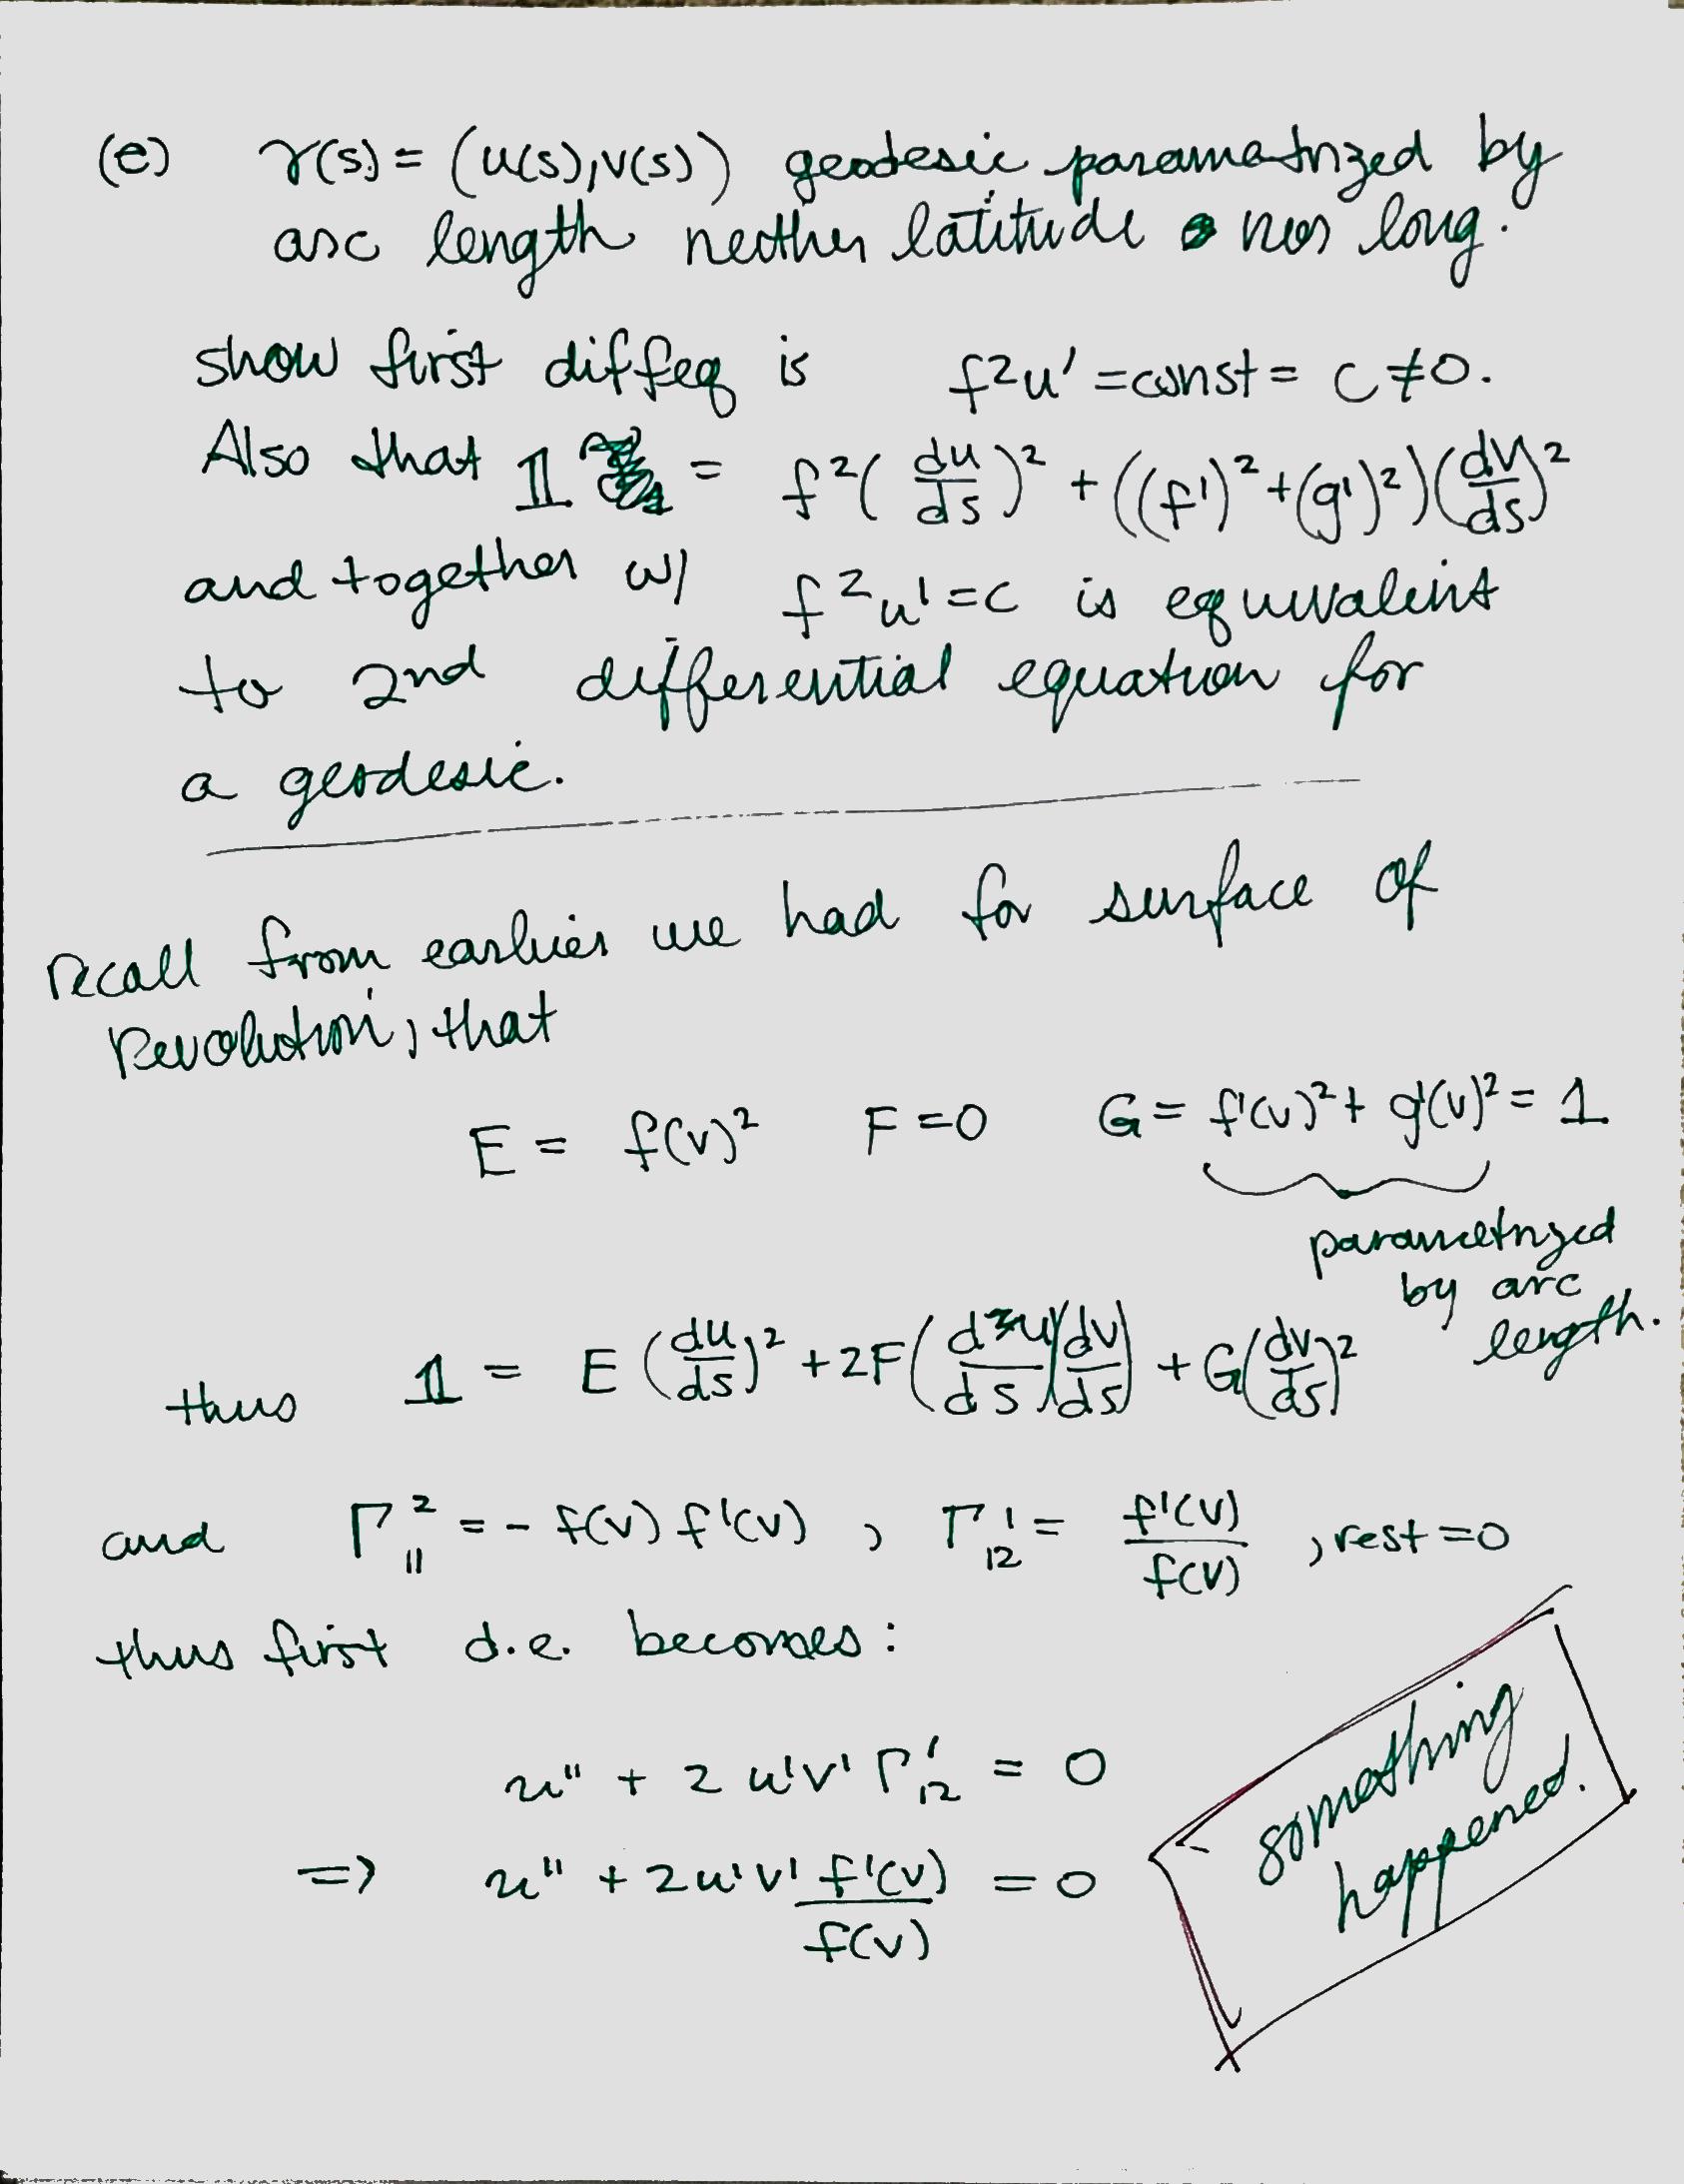 (e) γ(s) = (u(s), v(s)) geodesic parametrized by
arc length neither latitude nor long.
show first diffeq is f²u' = const = c ≠ 0.
Also that 1 = f²(du/ds)² + ((f')² + (g')²)(dv/ds)²
and together w/ f²u' = c is equivalent
to 2nd differential equation for
a geodesic.
recall from earlier we had for surface of
Revolution, that
E = f(v)² F = 0 G = f'(v)² + g'(v)² = 1
parametrized
by arc
length.
thus 1 = E(du/ds)² + 2F(du/ds)(dv/ds) + G(dv/ds)²
and Γ²₁₁ = - f(v) f'(v) , Γ¹₁₂ = f'(v)/f(v) , rest = 0
thus first d.e. becomes:
u'' + 2 u'v' Γ¹₁₂ = 0
=> u'' + 2u'v' f'(v)/f(v) = 0
something
happened.